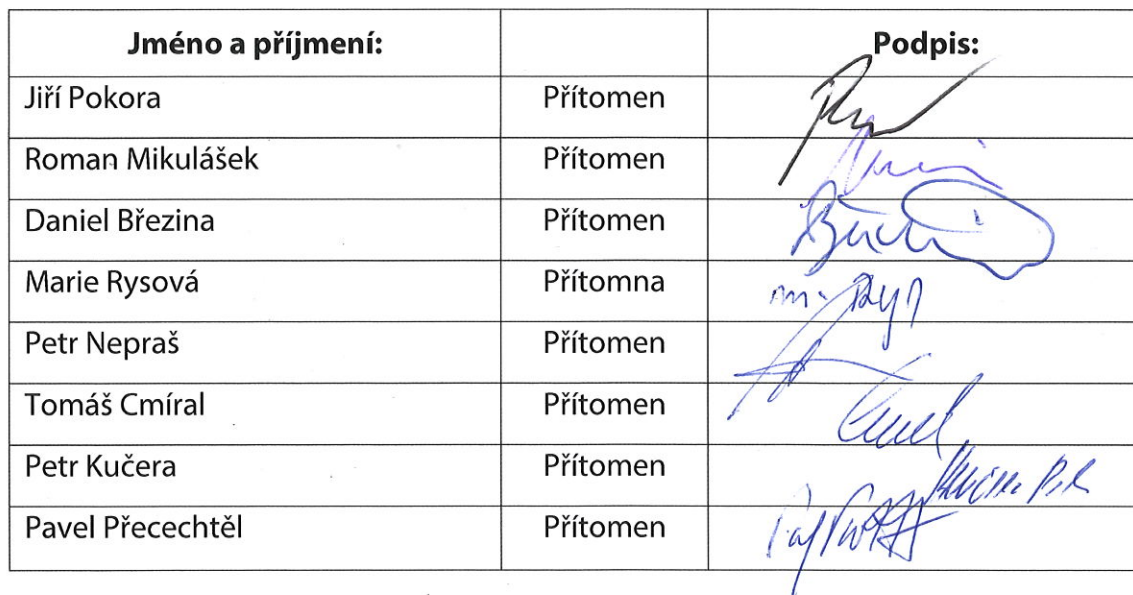 Jméno a příjmení: Podpis:
Jiří Pokora Přítomen
Roman Mikulášek Přítomen
Daniel Březina Přítomen
Marie Rysová Přítomna
Petr Nepraš Přítomen
Tomáš Cmíral Přítomen
Petr Kučera Přítomen
Pavel Přecechtěl Přítomen